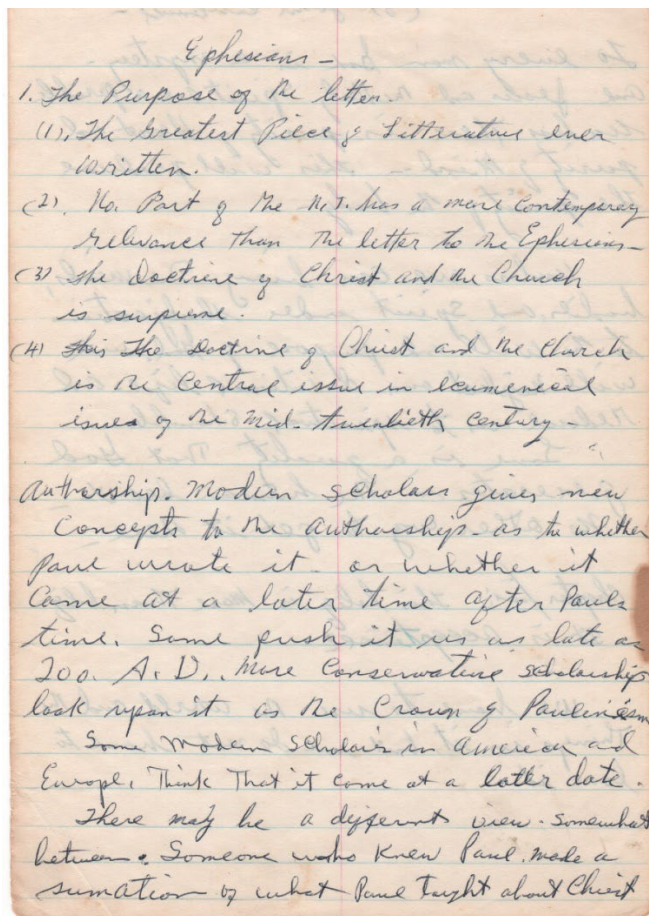 Ephesians -
1. The Purpose of the letter.
(1). The Greatest Piece of Litterature ever
written.
(2). No. Part of the N.T. has a more contemporary
relevance than the letter to the Ephesians -
(3) The Doctrine of Christ and the Church
is supreme.
(4) This The Doctrine of Christ and the Church
is the Central issue in ecumenical
issues of the Mid-twentieth century -
Authorship. Modern scholars gives new
concepts to the Authorship - as to whether
Paul wrote it - or whether it
came at a later time after Pauls
time. Some push it up as late as
200. A.D. More Conservative scholarship
look upon it as the Crown of Paulinism
Some Modern Scholars in America and
Europe, Think That it came at a latter date.
There may be a different view - somewhat
between. Someone who knew Paul. made a
sumation of what Paul taught about Christ